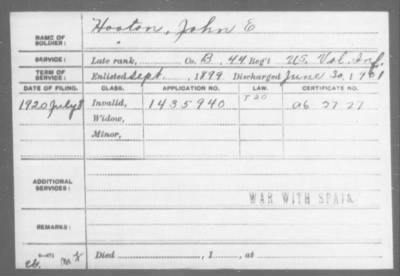 NAME OF SOLDIER: Hooton, John E
SERVICE: Late rank, Co. B, 44 Reg't U.S. Vol. Inf.
TERM OF SERVICE: Enlisted Sept, 1899, Discharged June 30, 1901
DATE OF FILING. CLASS. APPLICATION NO. LAW. CERTIFICATE NO.
1920 July 8 Invalid, 1435940 J 20
Widow,
Minor,
ADDITIONAL SERVICES:
WAR WITH SPAIN
REMARKS:
Died , 1 , at